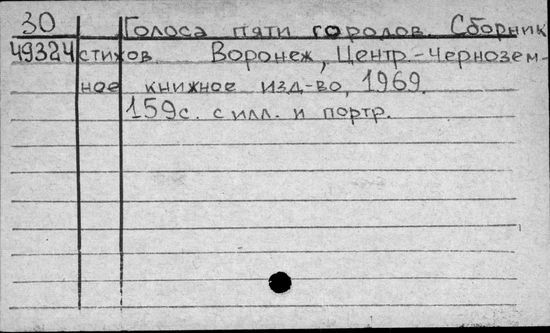 30 Голоса пяти городов. Сборник
49324 стихов. Воронеж, Центр.-Чернозем-
ное книжное изд-во, 1969.
159с. с илл. и портр.